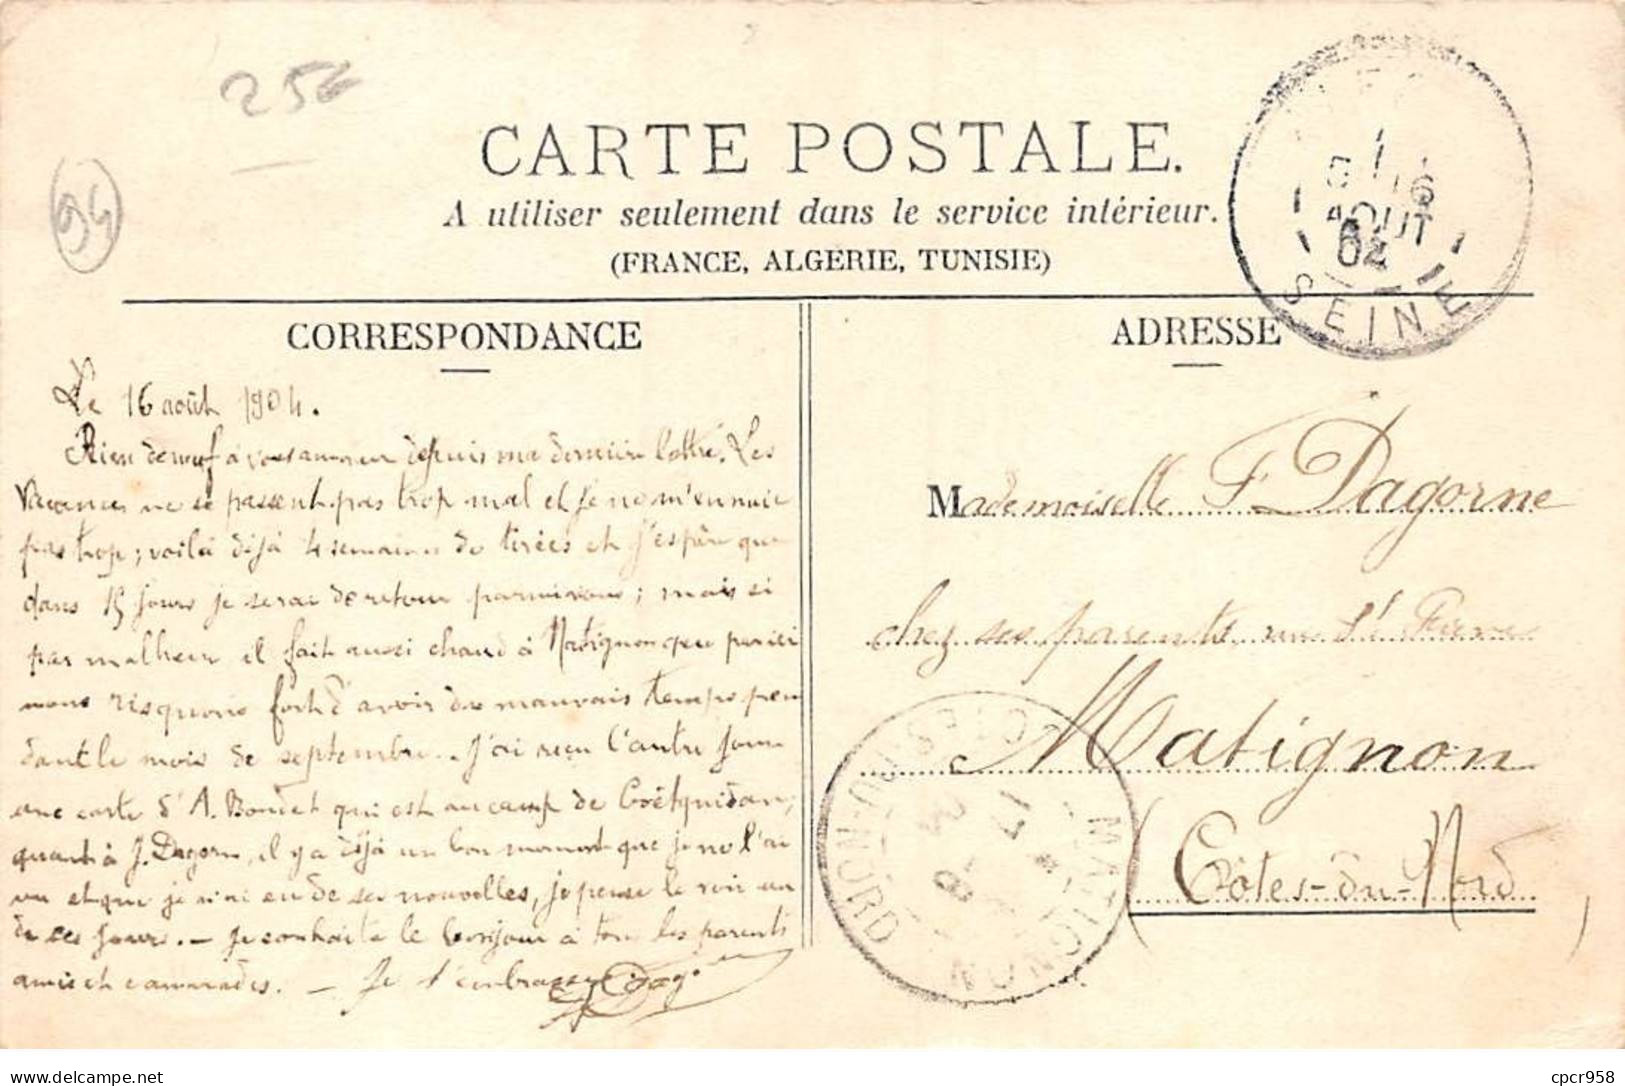 25€
94
CARTE POSTALE.
A utiliser seulement dans le service intérieur.
(FRANCE, ALGERIE, TUNISIE)
16
AOUT
04
SEINE
CORRESPONDANCE
ADRESSE
Le 16 août 1904.
Rien de neuf à vous annoncer depuis ma dernière lettre. Les
vacances ne se passent pas trop mal et je ne m'ennuie
pas trop; voilà déjà 4 semaines de tirées et j'espère que
dans 15 jours je serai de retour parmi vous; mais si
par malheur il fait aussi chaud à Matignon que par ici
nous risquons fort d'avoir du mauvais temps pen
dant le mois de septembre. J'ai reçu l'autre jour
une carte d'A. Boudet qui est au camp de Coëtquidan;
quant à J. Dagorn, il y a déjà un bon moment que je ne l'ai
vu et que je n'ai eu de ses nouvelles, je pense le voir un
de ces jours. — Je souhaite le bonjour à tous les parents
amis et camarades. — Je t'embrasse
Mademoiselle F. Dagorne
chez ses parents rue St Pierre
Matignon
(Côtes-du-Nord)
MATIGNON
CÔTES-DU-NORD
17
8
cpcr958